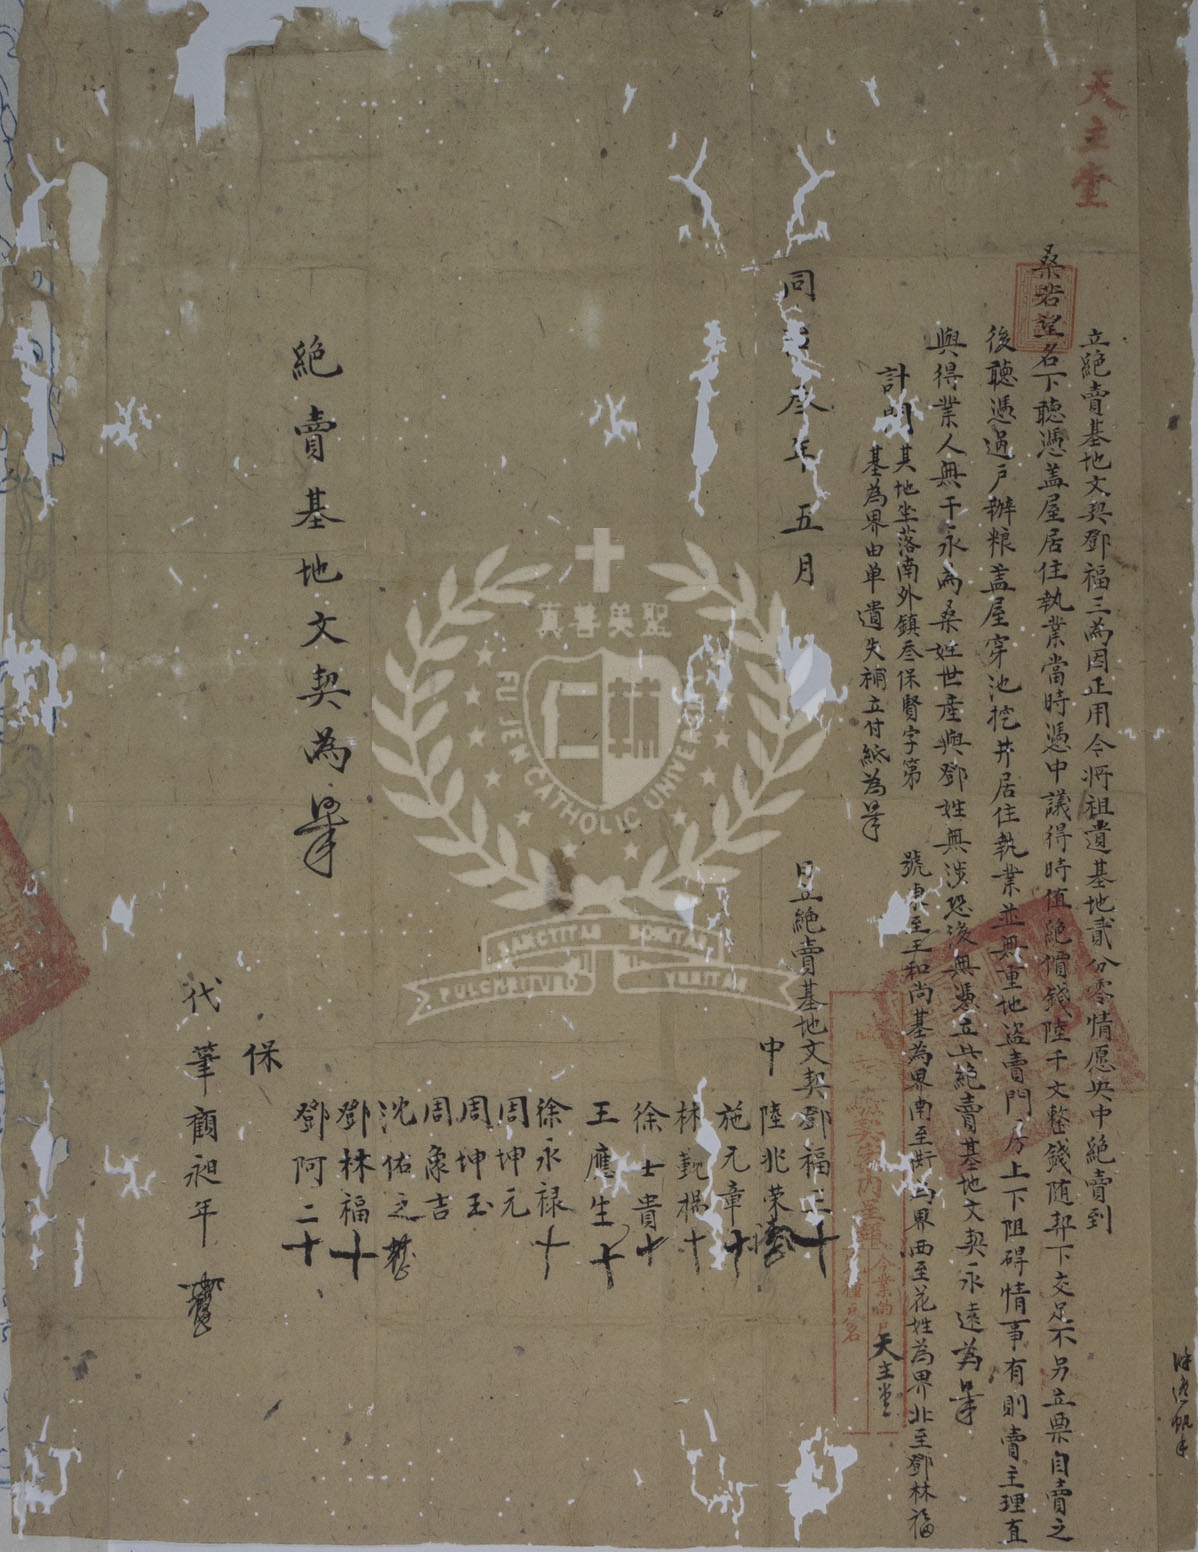 天主堂
立絕賣基地文契鄧福三為因正用今將祖遺基地貳分零情愿央中絕賣到
桑若望名下聽憑蓋屋居住執業當時憑中議得時值絕價錢陸千文整錢隨契下交足不另立票自賣之
後聽憑過戶辦粮蓋屋穿池挖井居住執業並無重地盜賣門房上下阻碍情事有則賣主理直
與得業人無干永為桑姓世產與鄧姓無涉恐後無憑立此絕賣基地文契永遠為
計開其地坐落南外鎮叁保賢字第 號東至王和尚基為界南至街為界西至花姓為界北至鄧林福
基為界由单遺失補立付紙為
同 年五月 日立絕賣基地文契鄧福三十
中 陸兆榮
施元章十
林 十
徐士貴十
王應生十
徐永禄十
周坤元
周坤玉
周象吉
沈佑之
鄧林福十
鄧阿二十
保
代筆顧昶年
絕賣基地文契為
天主堂
真善美聖
FU JEN CATHOLIC UNIVERSITY
SANCTITAS BONITAS
PULCHRITUDO VERITAS